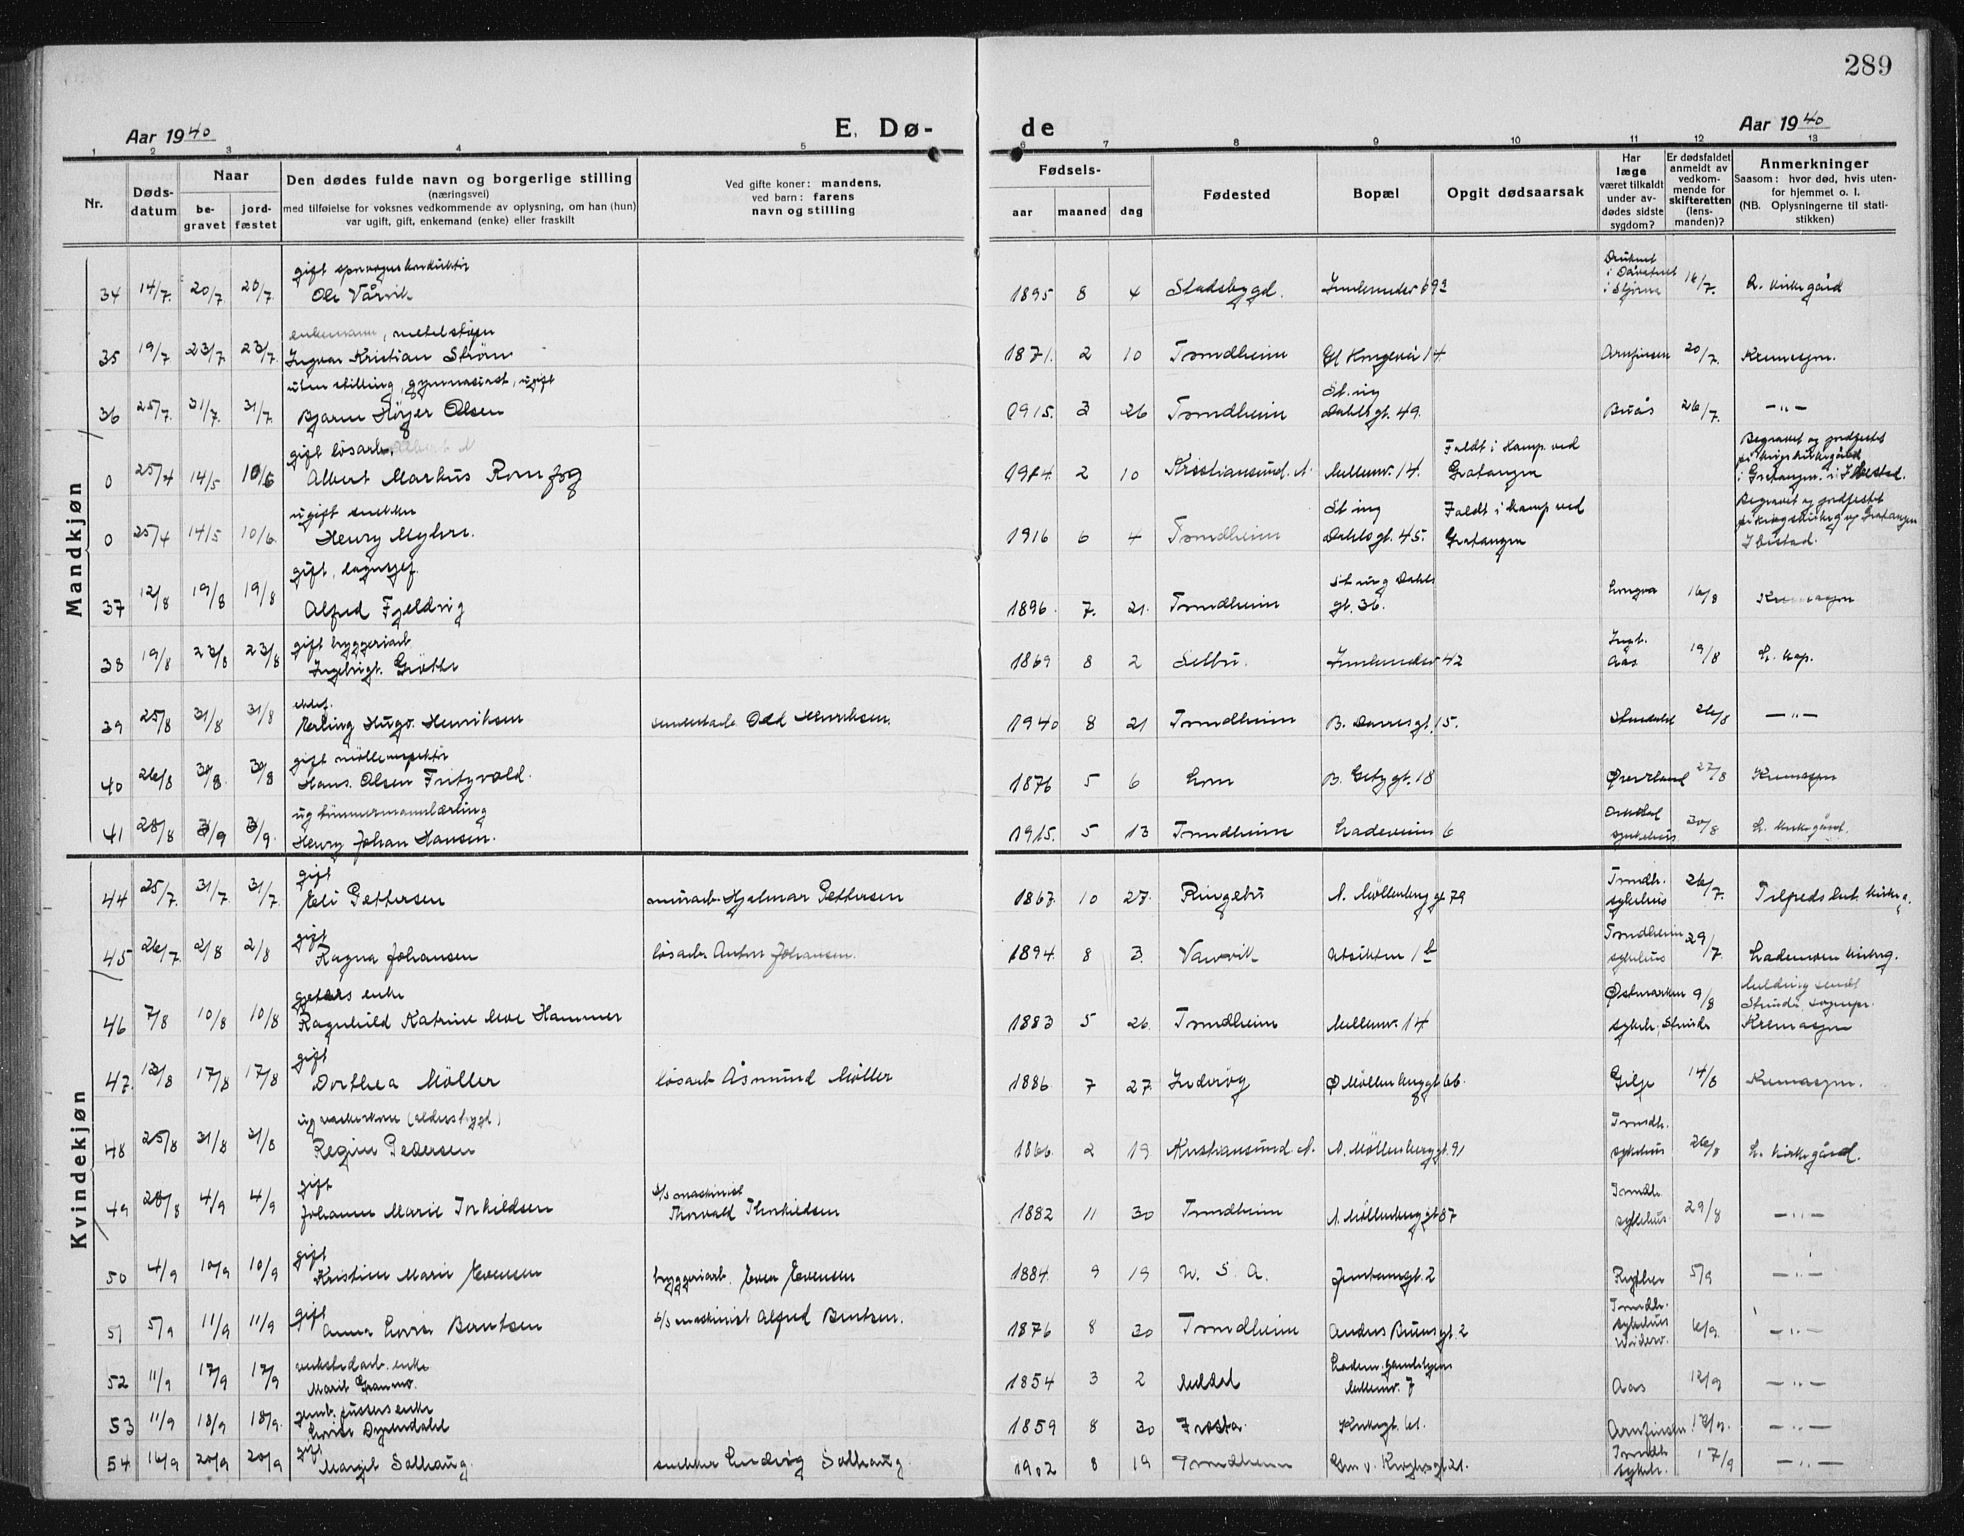 289
Aar 1940 E. Dø- de Aar 1940
1 2 3 4 5 6 7 8 9 10 11 12 13
Nr. Døds-datum Naar be-gravet jord-fæstet Den dødes fulde navn og borgerlige stilling (næringsvei) med tilføielse for voksnes vedkommende av oplysning, om han (hun) var ugift, gift, enkemand (enke) eller fraskilt Ved gifte koner: mandens, ved barn: farens navn og stilling Fødsels- aar maaned dag Fødested Bopæl Opgit dødsaarsak Har læge været tilkaldt under av-dødes sidste sygdom? Er dødsfaldet anmeldt av vedkom-mende for skifteretten (lens-manden)? Anmerkninger Saasom: hvor død, hvis uten-for hjemmet o. l. (NB. Oplysningerne til stati-stikken)
Mandkjøn
gift sporvognskonduktør
34 14/7. 20/7. 20/7. Ole Vårvik 1895 8 4 Stadsbygd. Innherredsv 69 16/7. L. kirkegård
enkemann,
35 19/7 23/7. 23/7. Ingvar Kristian Strøm 1871. 2 10 Trondheim Gl Kongevei 14 Arnfinsen 20/7. Kremasjon.
uten stilling, gymnasiast, ugift
36 25/7. 31/7. 31/7. Bjarne Höyer Olsen 1915. 3 26 Trondheim Dahlsgt. 49. Buås 26/7. —"—
gift løsarb.
0 25/4 14/5 10/6 Albert Markus 2 10 Kristiansund. N Mellemv. 14. Faldt i kamp ved Gratangen Begravet og jordfestet på krigskirkegård i Gratangen i Ibestad.
ugift snekker
0 25/4 14/5 10/6. Henry Myhre. 1916 6 4 Trondheim Dahlsgt. 45. Faldt i kamp ved Gratangen Begravet og jordfestet på krigskirkeg og Gratangen Ibestad.
gift, lagersjef.
37 12/8 19/8 19/8 Alfred Fjeldvig 1896. 7. 21. Trondheim gt. 36. Longva 16/8 Kremasjon
gift bryggeriarb
38 19/8 23/8 23/8 Ingebrigt. Grøtte 1869 8 2 Selbu. Innherredsv 42 Ingb. Aas 19/8 L. kap.
ektef.
39 25/8 31/8 31/8 Erling Hugo. Henriksen Odd Henriksen. 1940 8 21 Trondheim B. Darresgt. 5. 26/8 —"—
gift mølleinspektør
40 26/8 30/8. 30/8 Hans. Olsen Fritzvold. 1876 5 6 Lom B. Getzgt. 18 Øverland 27/8 Kremasjon
ug tømmermannslærling
41 28/8 3/9 3/9. Henry Johan Hansen. 1915. 5 13 Trondheim Ladeveien 6 Orkdal sykehus 30/8 L. kirkegård.
Kvindekjøn
gift
44 25/7. 31/7 31/7. Eli Pettersen murarb. Hjalmar Pettersen 1867. 10 27. Ringebu N. Möllenberg gt 79 Trondh. sykehus 26/7.
gift
45 26/7. 2/8 2/8 Ragna Johansen løsarb. Anton Johansen. 1894 8 3. Utsikten 1 b Trondheim sykehus 29/7. Lademoen kirkeg.
enke
46 7/8 10/8 10/8 Ragnhild Katrine Moe Hammer 1883 5 26. Trondheim Mellemv. 14 Østmarken sykeh, Strinda 9/8 Melding sendt Strinda sognepr. Kremasjon
gift
47. 13/8 17/8 17/8 Dorthea Möller løsarb Åsmund Møller 1886. 7 27. Inderøy Ø Möllenberggt 6b. Gilje 14/8 Kremasjon.
48 25/8 31/8 31/8 Regine Pedersen 1866. 2 19 Kristiansund. N. N. Möllenberggt. 91 Trondh. sykehus 26/8 L. kirkegård.
gift
49 28/8 4/9 4/9 Johanne Marie Torkildsen d/s maskinist Thorvald Thorkildsen 1882 11 30 Trondheim N. Möllenberggt 87 Trondh. sykehus 29/8 —"—
gift
50 4/9 10/9 10/9 Kristine Marie Evensen bryggeriarb. Even Evensen 1884. 9 19 U. S. A. 2 Ryther 5/9 —"—
gift
51 5/9 11/9 11/9 Anna Lovise Berntsen d/s maskinist Alfred Berntsen. 1876 8 30 Trondheim Anders Buensgt. 2 Trondh. sykehus 6/9. —"—
verkstedarb. enke
52 11/9 17/9 17/9 Marit Grammo. 1854 3 2 Meldal Ladem. gamlehjem Mellemv. 7 Aas 12/9 —"—
enke
53 11/9 18/9 18/9. Lovise 1859 8 30 Frosta Kirkegt. 61. Arnfinsen 12/9. —"—
gift
54 16/9 20/9 20/9 Margit Solhaug. snekker Ludvig Solhaug. 1902 8 19 Trondheim Chr. v. Kroghsgt 21. Trondh sykeh. 17/9 —"—